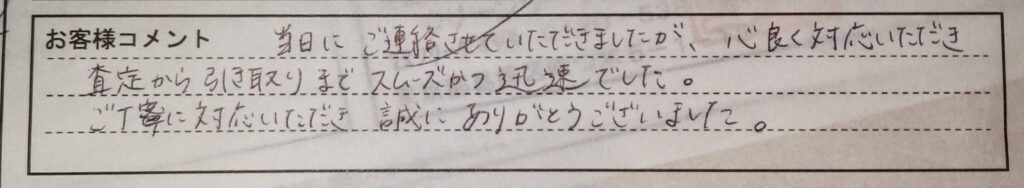 お客様コメント 当日にご連絡させていただきましたが、心良く対応いただき
査定から引き取りまでスムーズかつ迅速でした。
ご丁寧に対応いただき 誠にありがとうございました。